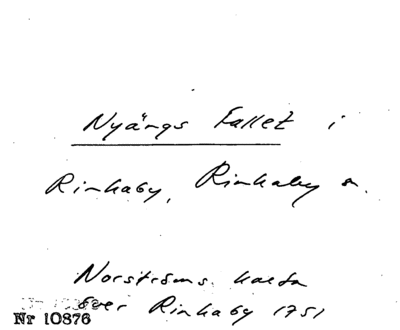 Nyängs Fallet i
Rinkaby, Rinkaby sn.
Norströms karta
över Rinkaby 1751
Nr 10876